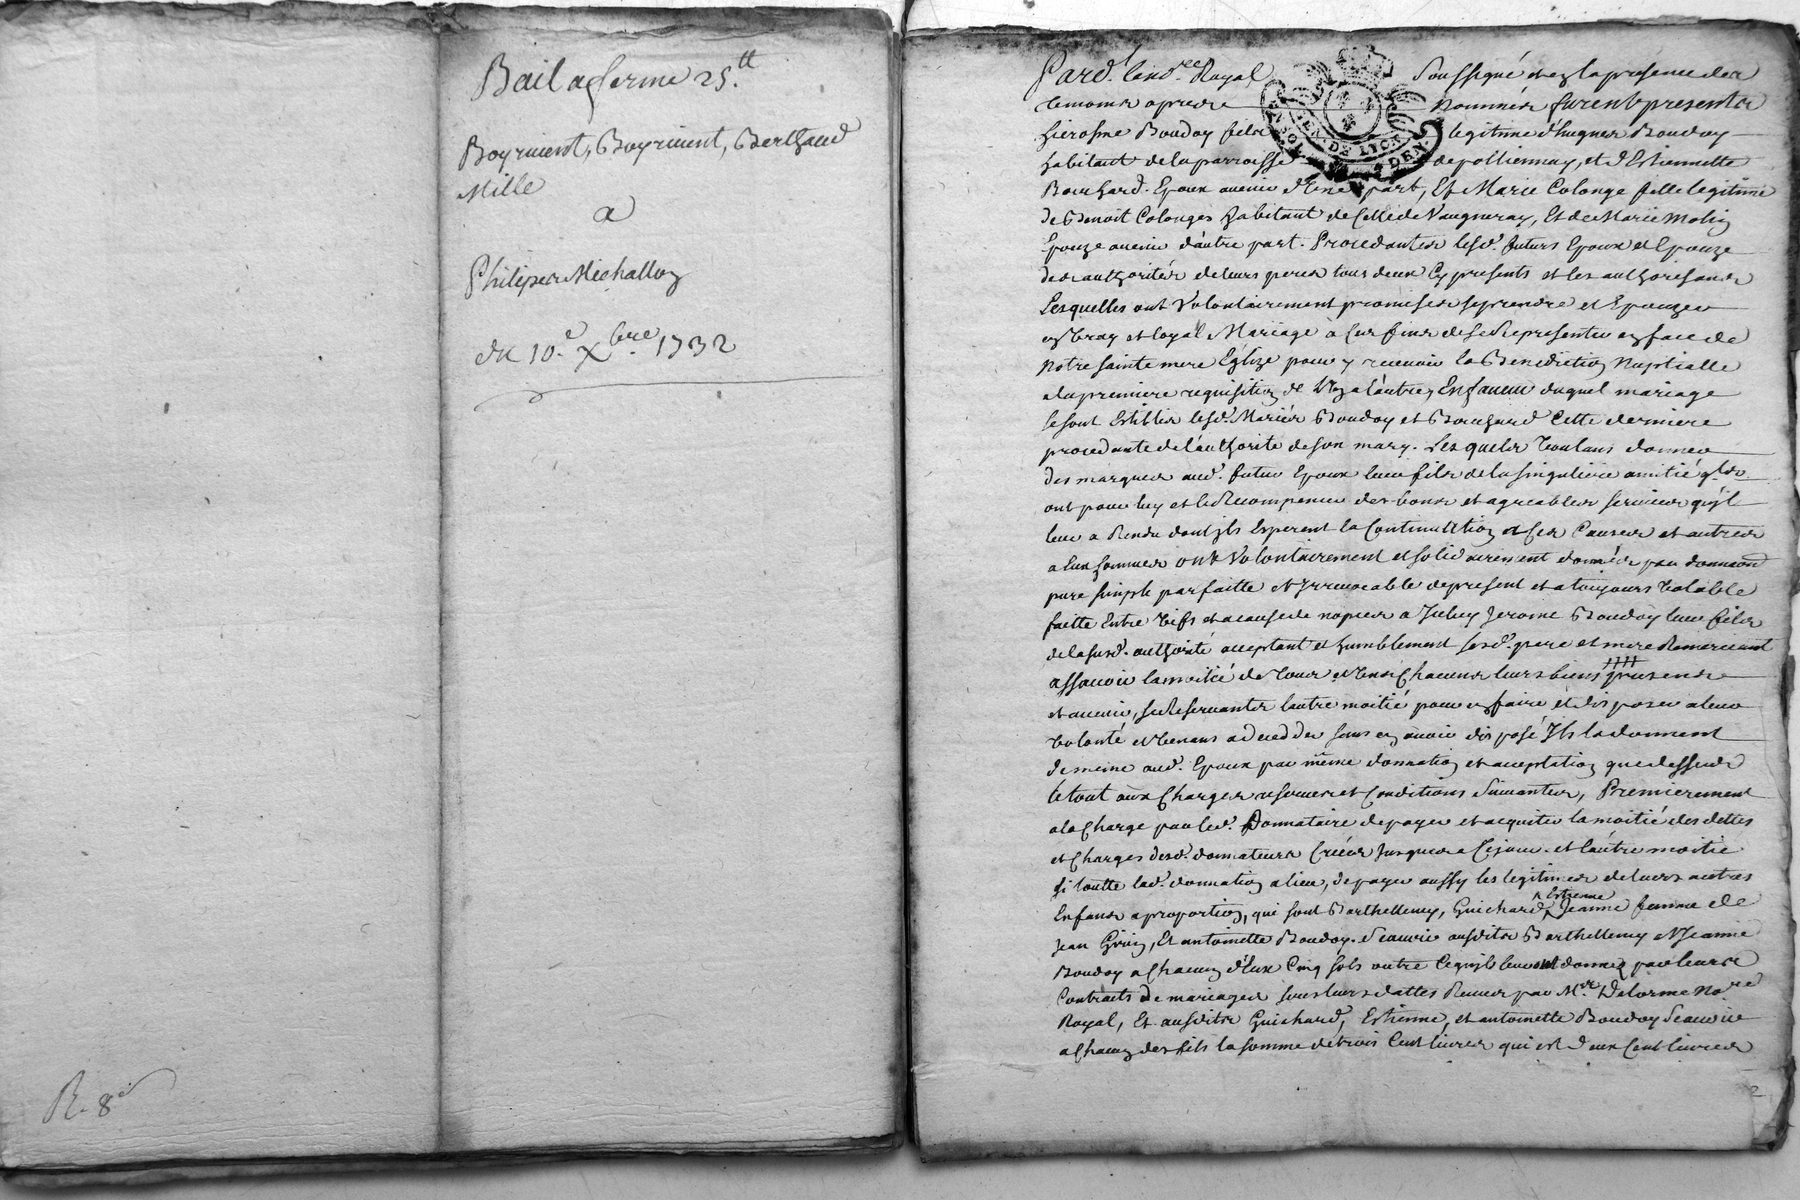 Bail a ferme 25.tt
Boyriuent, Boyriuent, Berthaud
Mille
a
Philiper Michallon
du 10.e Xbre 1732
R. 8
Pard.t le no.re Royal Soussigné et en la presence des
temoins apres nommés furent presents
hierosme Boudoy fils legitime d'hugues Boudoy
habitant de la parroisse de pollionnay, et d'Estiennette
Bouchard. Epoux avenir d'une part, Et Marie Colonge fille legitime
de Benoit Colonges habitant de Celle de Vaugneray, Et de Marie Molin
Epouze avenir d'autre part. Procedantes lesd. futurs Epoux et Epouze
des authorités de leurs peres tous deux Cy presents et les authorisans
Lesquelles ont Volontairement promis de se prendre et Epouzer
en Vray et loyal Mariage a Ces fins de se Representer en face de
notre sainte mere Eglize pour y recevoir la Benediction Nuptialle
a la premiere requisition de l'un a l'autre, En faveur duquel mariage
se sont Establis lesd. Mariés Boudoy et Bouchard Cette derniere
procedante de l'authorité de son mary. Lesquels Voulans donner
des marques aud. futur Epoux leur fils de la singuliere amitié q'ls
ont pour luy et le Recompencer des bons et agreables services qu'jl
leur a Rendu dont jls Esperent la Continuation et Ces Causes et autres
a Eux Connues ont Volontairement et solidairement donnés par donnaon
pure simple parfaitte et Irrevocable de present et a toujours Valable
faitte Entre Vifs et a cause de nopces a Jceluy Jerome Boudoy leur fils
de la susd. authorité acceptant et humblement sesd. pere et mere Remerciant
assavoir la moitié de tous et uns Chacuns leurs biens presens
et avenir, se Reservantes l'autre moitié pour en faire et disposer a leur
Volonté et Venans a deceder sans en avoir disposé Jls la donnent
de meme aud. Epoux par même donnation et acceptation que dessus
le tout aux Charges reserves et Conditions Suivantes, Premierement
a la Charge par led. Donnataire de payer et acquiter la moitié des dettes
et Charges desd. donnateurs Créées Jusques a Cejour. et l'autre moitié
si toutte lad. donnation a lieu, de payer aussy les legitimes de leurs autres
Estienne
Enfans a proportion, qui sont Barthellemy, Guichard, Jeanne femme de
Jean Grin, Et antoinette Boudoy. Scavoir ausdits Barthellemy et Jeanne
Boudoy a Chacun d'Eux Cinq sols outre Ce qu'jls leur ont donnez par leurs
Contracts de mariages sous leurs dattes Receus par M.r Delorme No.re
Royal, Et ausdits Guichard, Estienne, et antoinette Boudoy Scavoir
a Chacun des fils la somme de trois Cent livres qui est deux Cent livres
2